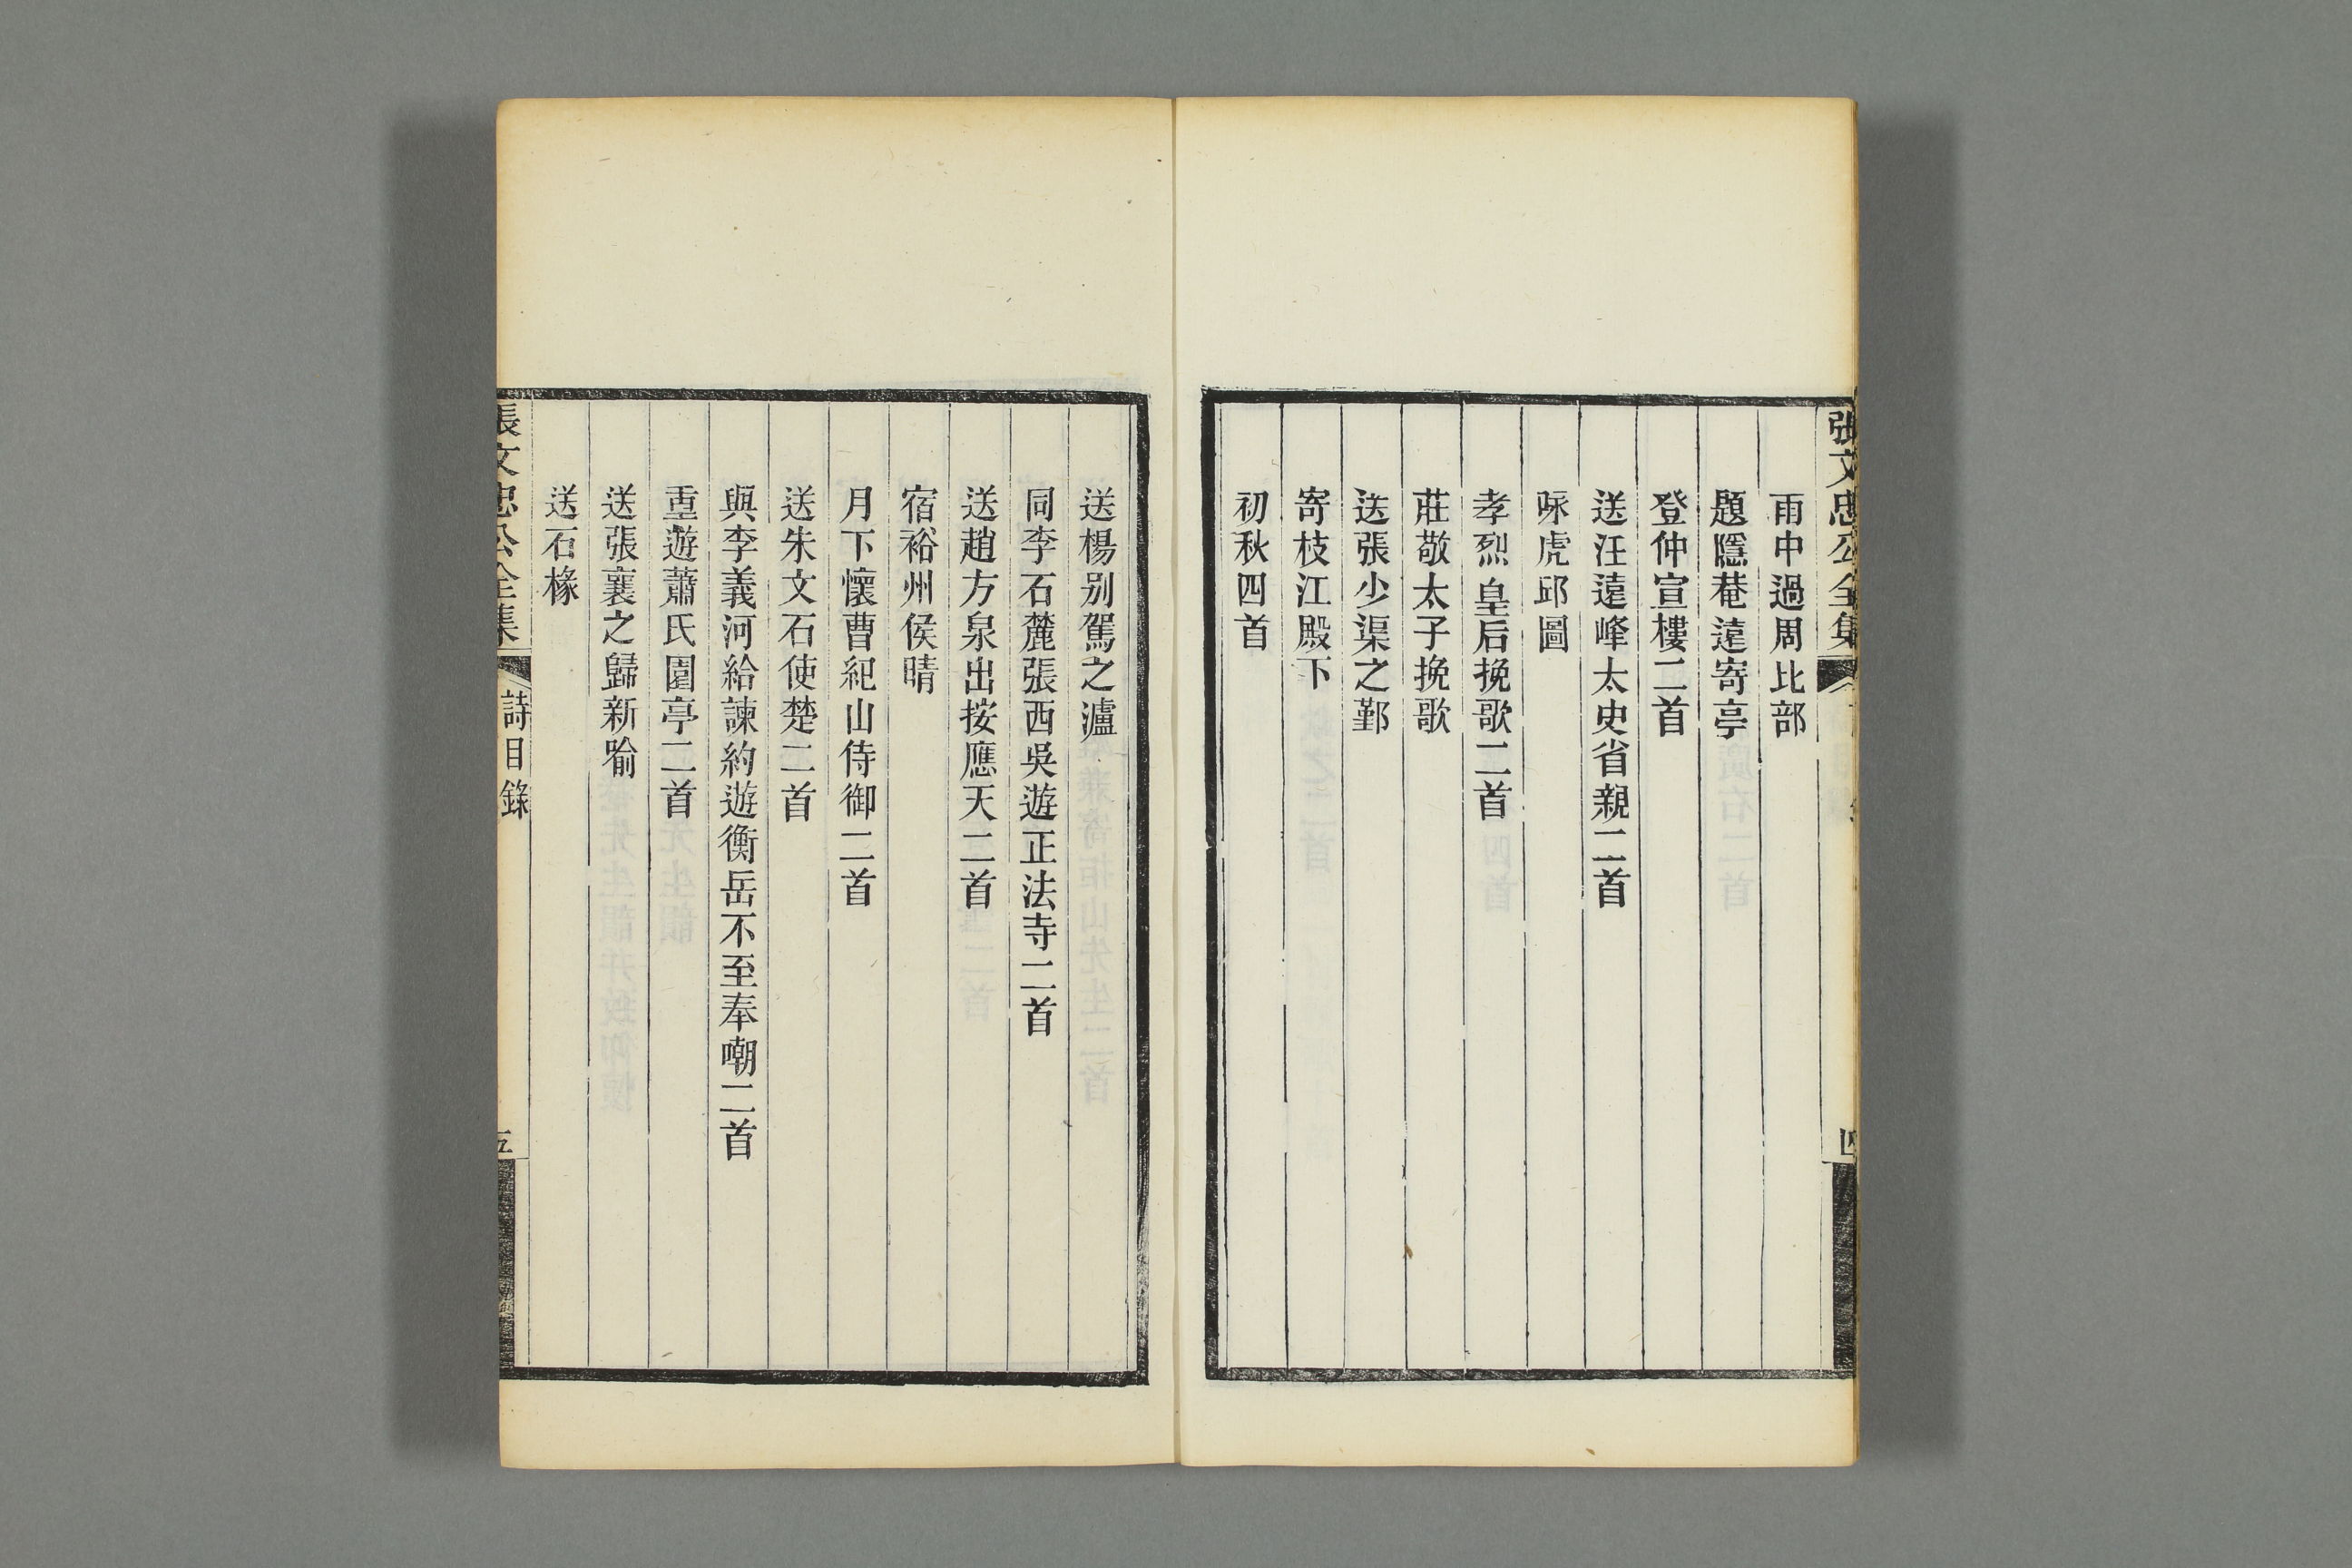 張文忠公全集
四
雨中過周比部
題隱菴遠寄亭
登仲宣樓二首
送汪遠峰太史省親二首
咏虎邱圖
孝烈皇后挽歌二首
莊敬太子挽歌
送張少渠之鄞
寄枝江殿下
初秋四首
送楊别駕之瀘
同李石麓張西吳遊正法寺二首
送趙方泉出按應天二首
宿裕州侯晴
月下懷曹紀山侍御二首
送朱文石使楚二首
與李義河給諫約遊衡岳不至奉嘲二首
重遊蕭氏園亭二首
送張襄之歸新喻
送石椽
張文忠公全集
詩目錄
五